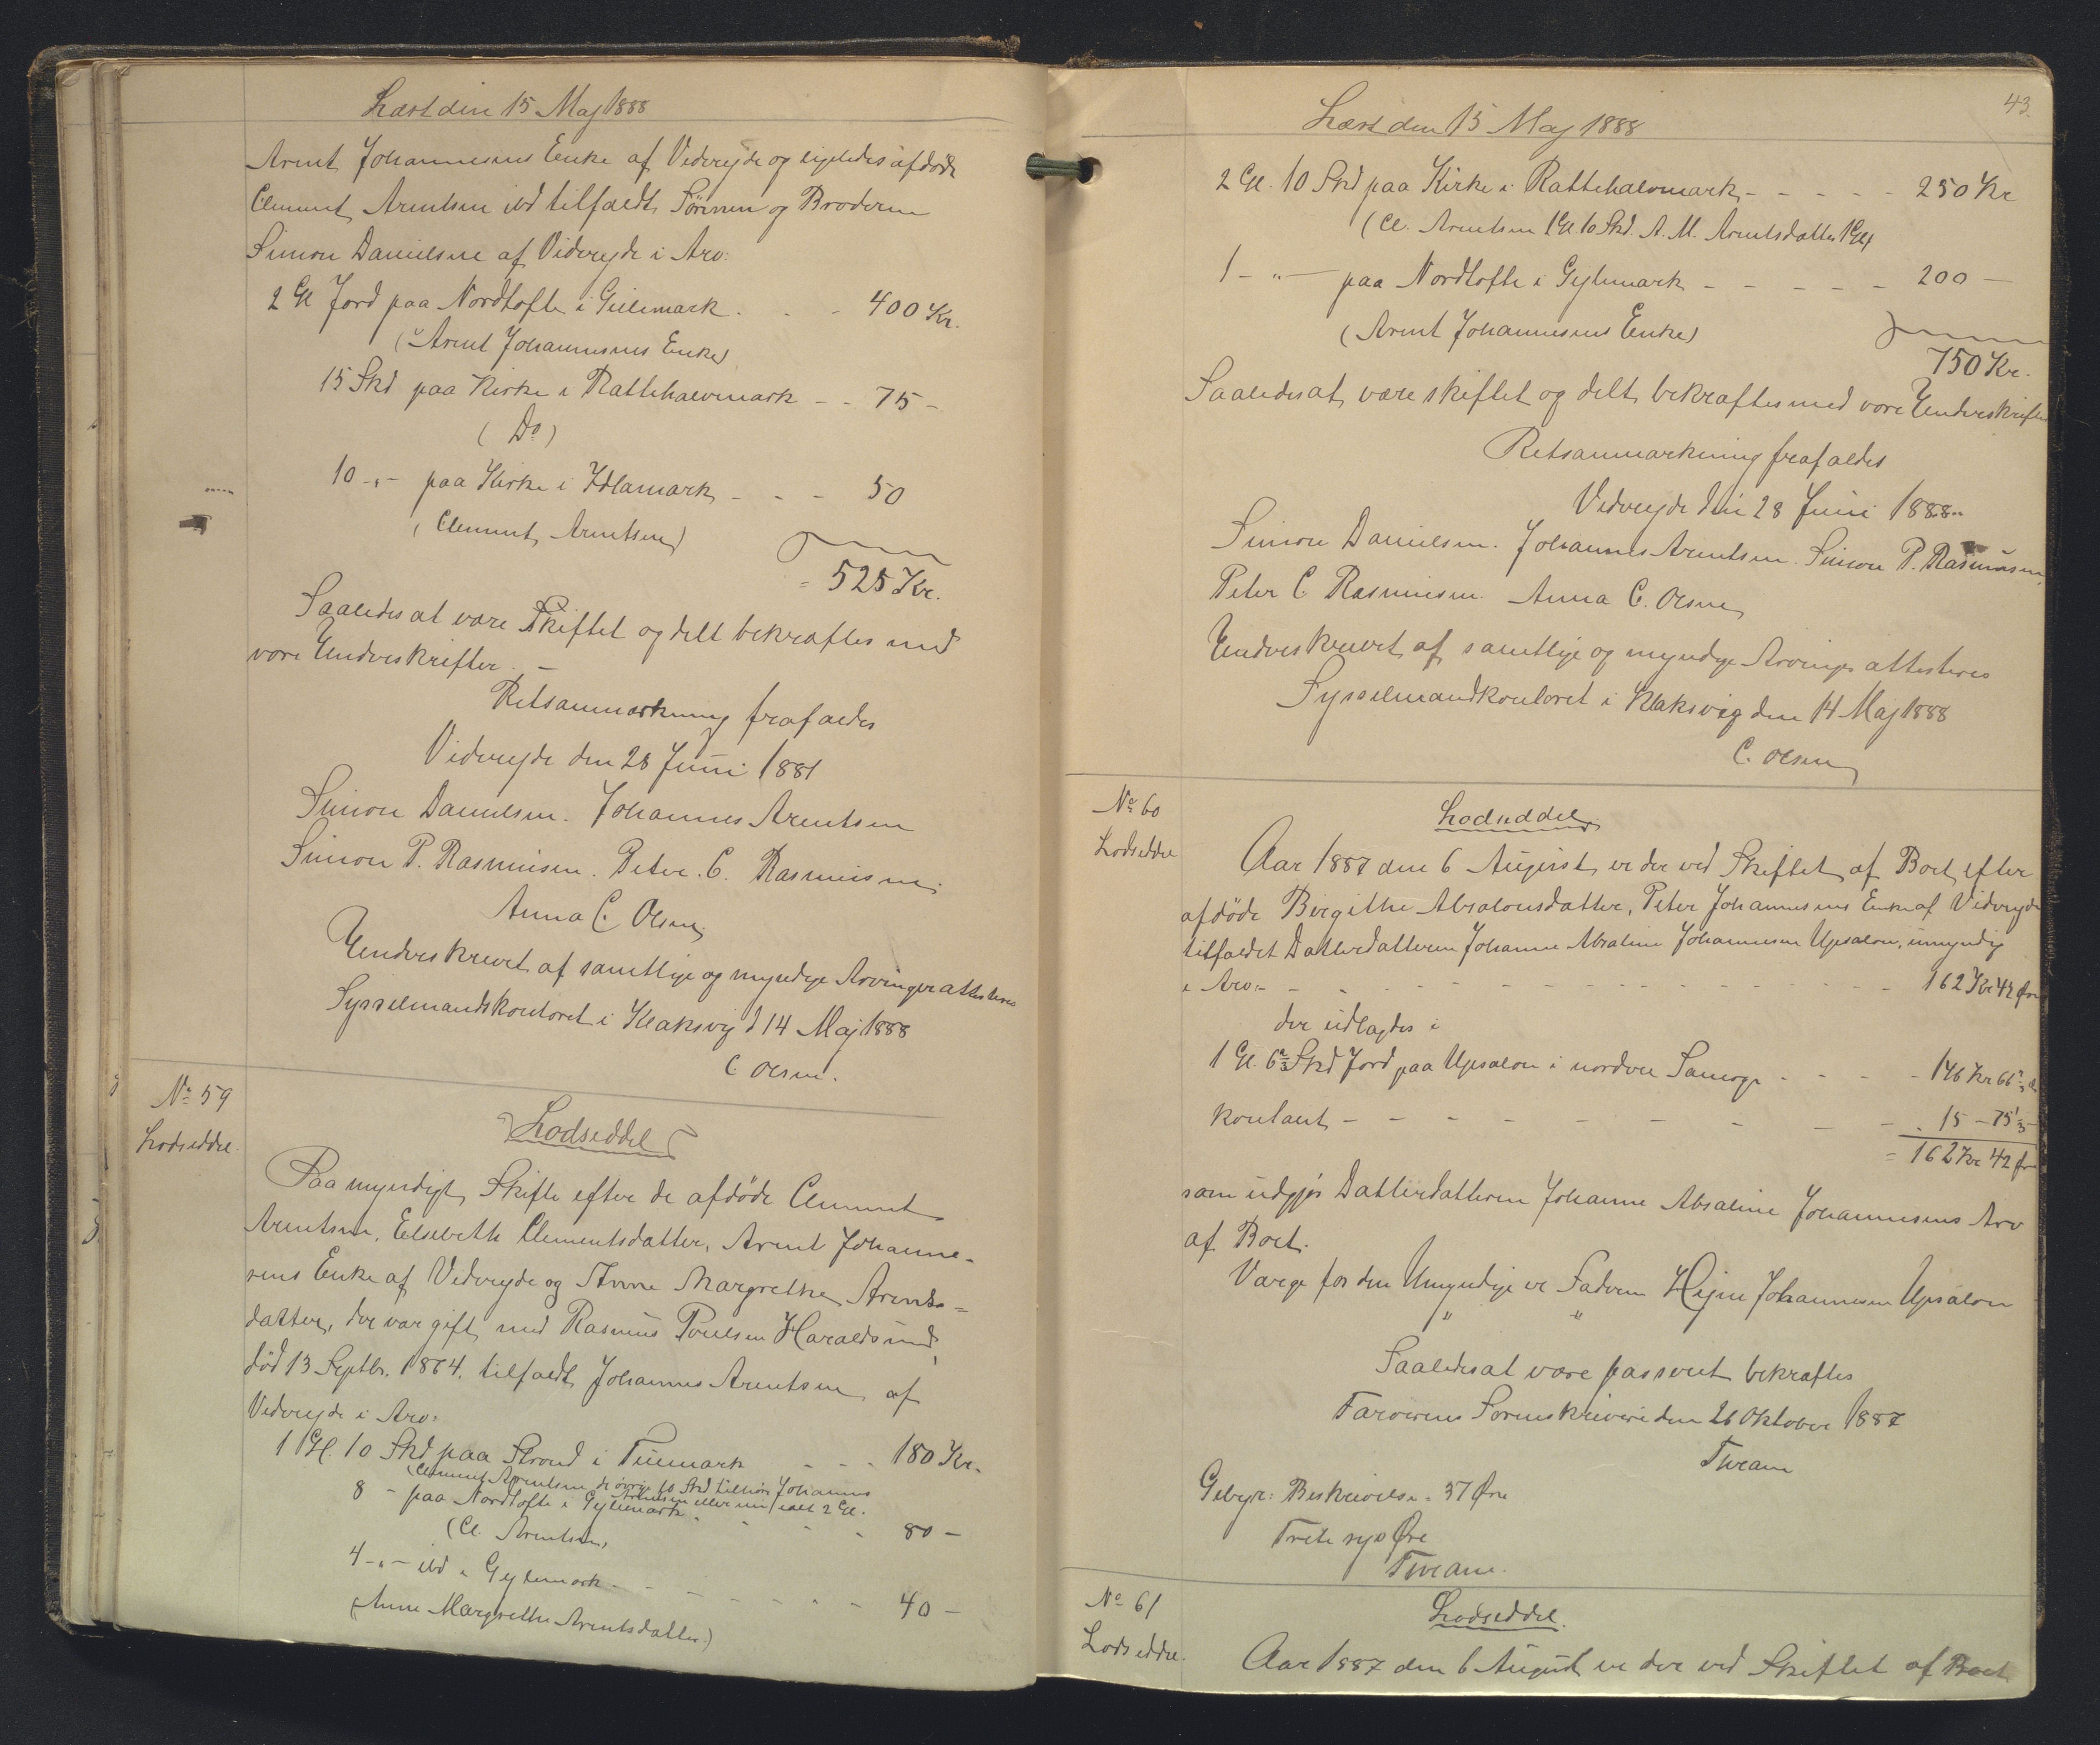 Læst den 15 Maj 1888
Arent Johannesens Enke af Viderejde og ligeledes afdøde
Clement Arentsen ibd tilfaldt Sönnen og Broderen
Simon Danielsen af Videreide i Arv:
2 Gl Jord paa Nordtofte i Geilemark . . - 400 Kr.
(Arent Johannesens Enke)
15 Skd paa Kirke i Rattehalvmark - - 75 -
(Do)
10 -"- paa Kirke i - - - 50
(Clement Arentsen)
= 525 Kr.
Saaledes at være Skiftet og delt bekræftes med
vore Underskrifter. -
Retsanmærkning frafaldes
Viderejde den 28 Juni 1881
Simon Danielsen. Johannes Arentsen
Simon P. Rasmusen. Peter. C. Rasmusen.
Anna C. Olsen
Underskrevet af samtlige og myndige Arvinger attesteres
Sysselmandskontoret i Klaksvig d 14 Maj 1888
C. Olsen.
No 59
Lodseddel.
Lodseddel
Paa myndigt Skifte efter de afdøde Clement
Arentsen, Elsebeth Clementsdatter, Arent Johanne-
sens Enke af Viderejde og Anne Margrethe Arents=
datter, der var gift med Rasmus Poulsen Haraldsund,
död 13 Septbr. 1864. tilfaldt Johannes Arentsen af
Viderejde i Arv:
1 Gl. 10 Skd paa Strond i Tuemark - - - 180 Kr.
(Clement Arentsen de øvrige 10 Skd tilhöre Johannes
Arentsen eller ialt 2 Gl.
8 - paa Nordtofte i Gejlemark - - - - 80 -
(Cl. Arentsen)
4 -"- ibd i Gejlemark - - - - - - 40 -
(Anne Margrethe Arentsdatter)
43
Læst den 15 Maj 1888
2 Gl. 10 Skd paa Kirke i Rattehalvmark - - - - - 250 Kr
(Cl. Arentsen 1 Gl. 10 Skd. A. M. Arentsdatter 1 Gl)
1 - " - paa Nordtofte i Gejlemark - - - - - 200 -
(Arent Johannesens Enke)
750 Kr.
Saaledes at være skiftet og delt bekræftes med vore Underskrifter
Retsanmærkning frafaldes
Videreide den 28 Juni 1888
Simon Danielsen. Johannes Arentsen. Simon P. Rasmusen,
Peter C. Rasmusen. Anna C. Olsen
Underskrevet af samtlige og myndige Arvinger attesteres
Sysselmandkontoret i Klaksvig den 14 Maj 1888
C. Olsen
No 60
Lodseddel
Lodseddel
Aar 1887 den 6 August er der ved Skiftet af Boet efter
afdöde Birgithe Absalonsdatter, Peter Johannesens Enke af Viderejde
tilfaldet Datterdatteren Johanne Absaline Johannesen Upsalon, umyndig
i Arv - - - - - - - - - - - - - 162 Kr 42 Øre
der udlagdes i
1 Gl. 6 2/3 Skd Jord paa Upsalon i nordre - - - - 146 Kr 66 2/3 Øre
Kontant - - - - - - - - - 15 - 75 1/3 -
= 162 Kr 42 Ør
som udgjør Datterdatteren Johanne Absaline Johannesens Arv
af Boet.
Værge for den Umyndige er Faderen Hejne Johannesen Upsalon
" "
Saaledes at være passeret bekræftes
Færoernes Sorenskriveri den 26 Oktober 1887
Gebyr: Beskrivelse = 37 Øre
Trete syv Øre
No 61
Lodseddel.
Lodseddel.
Aar 1887 den 6 August er der ved Skiftet af Boet